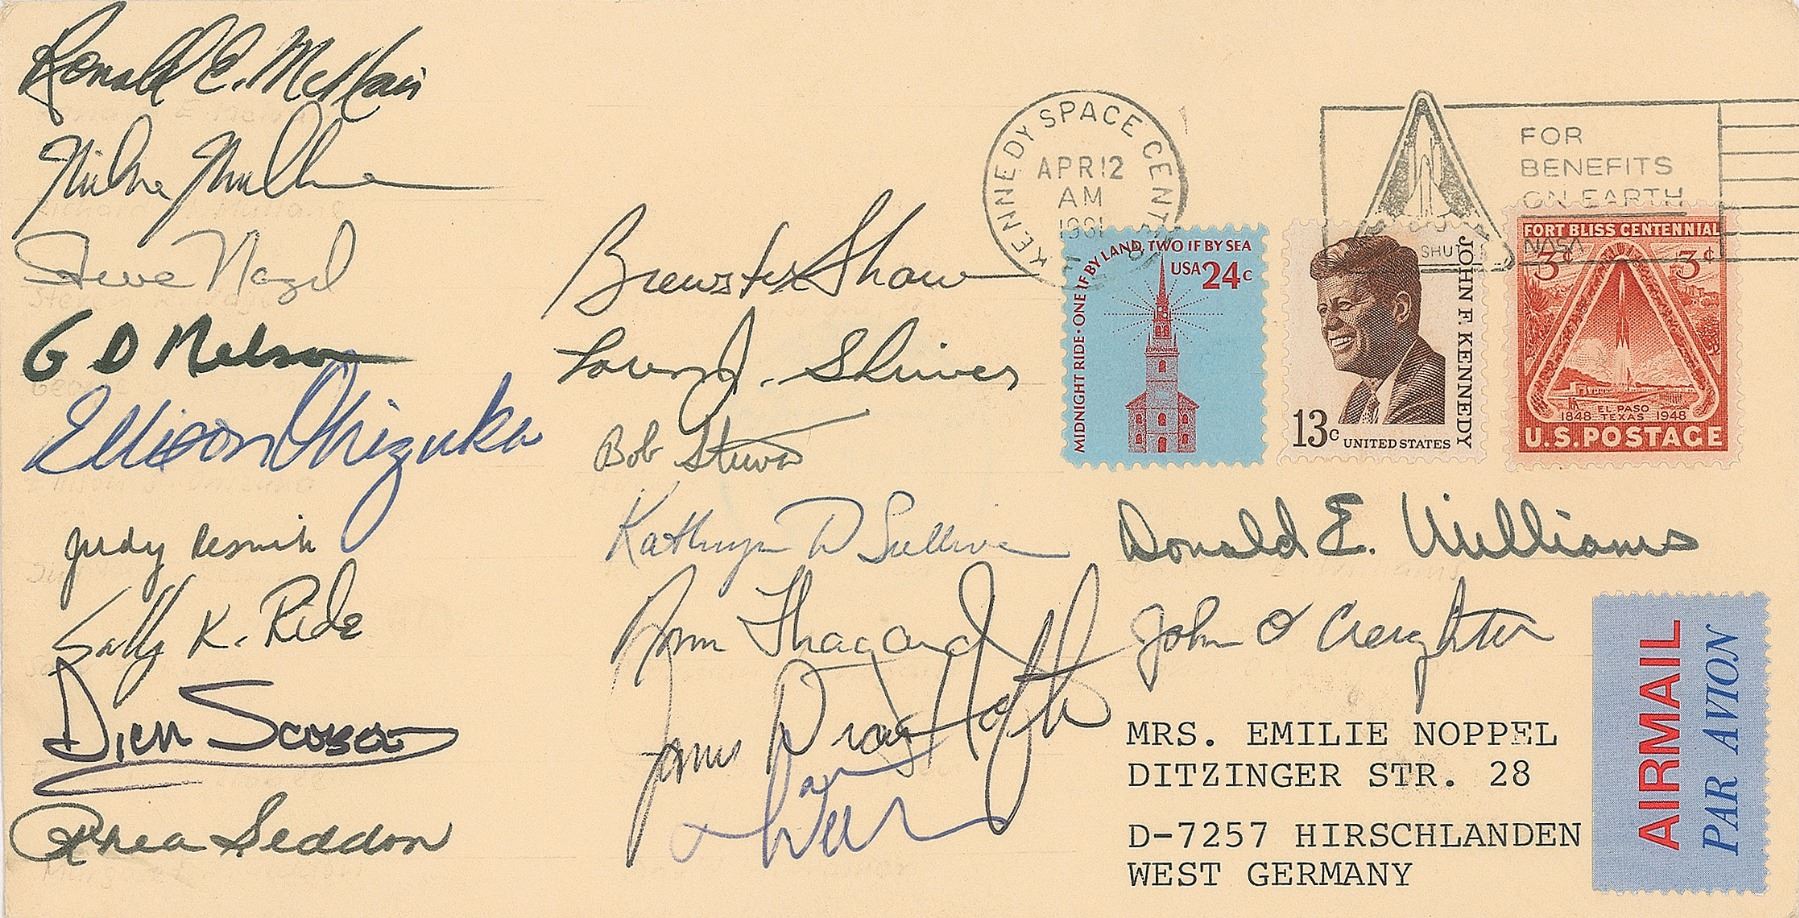 Ronald E. McNair
Mike Mullane
Steve Nagel
G D Nelson
Ellison Onizuka
Judy Resnik
Sally K. Ride
Dick Scobee
Rhea Seddon
Brewster Shaw
Loren J. Shriver
Bob Stewart
Kathryn D Sullivan
Norm Thagard
James van Hoften
Dave
Donald E. Williams
John O Creighton
KENNEDY SPACE CENTER
APR 12
AM
1981
FOR
BENEFITS
ON EARTH
NASA
SHU
MIDNIGHT RIDE · ONE IF BY LAND, TWO IF BY SEA
USA 24c
JOHN F. KENNEDY
13c UNITED STATES
FORT BLISS CENTENNIAL
3¢ 3¢
EL PASO
1848 TEXAS 1948
U.S. POSTAGE
MRS. EMILIE NOPPEL
DITZINGER STR. 28
D-7257 HIRSCHLANDEN
WEST GERMANY
AIRMAIL
PAR AVION